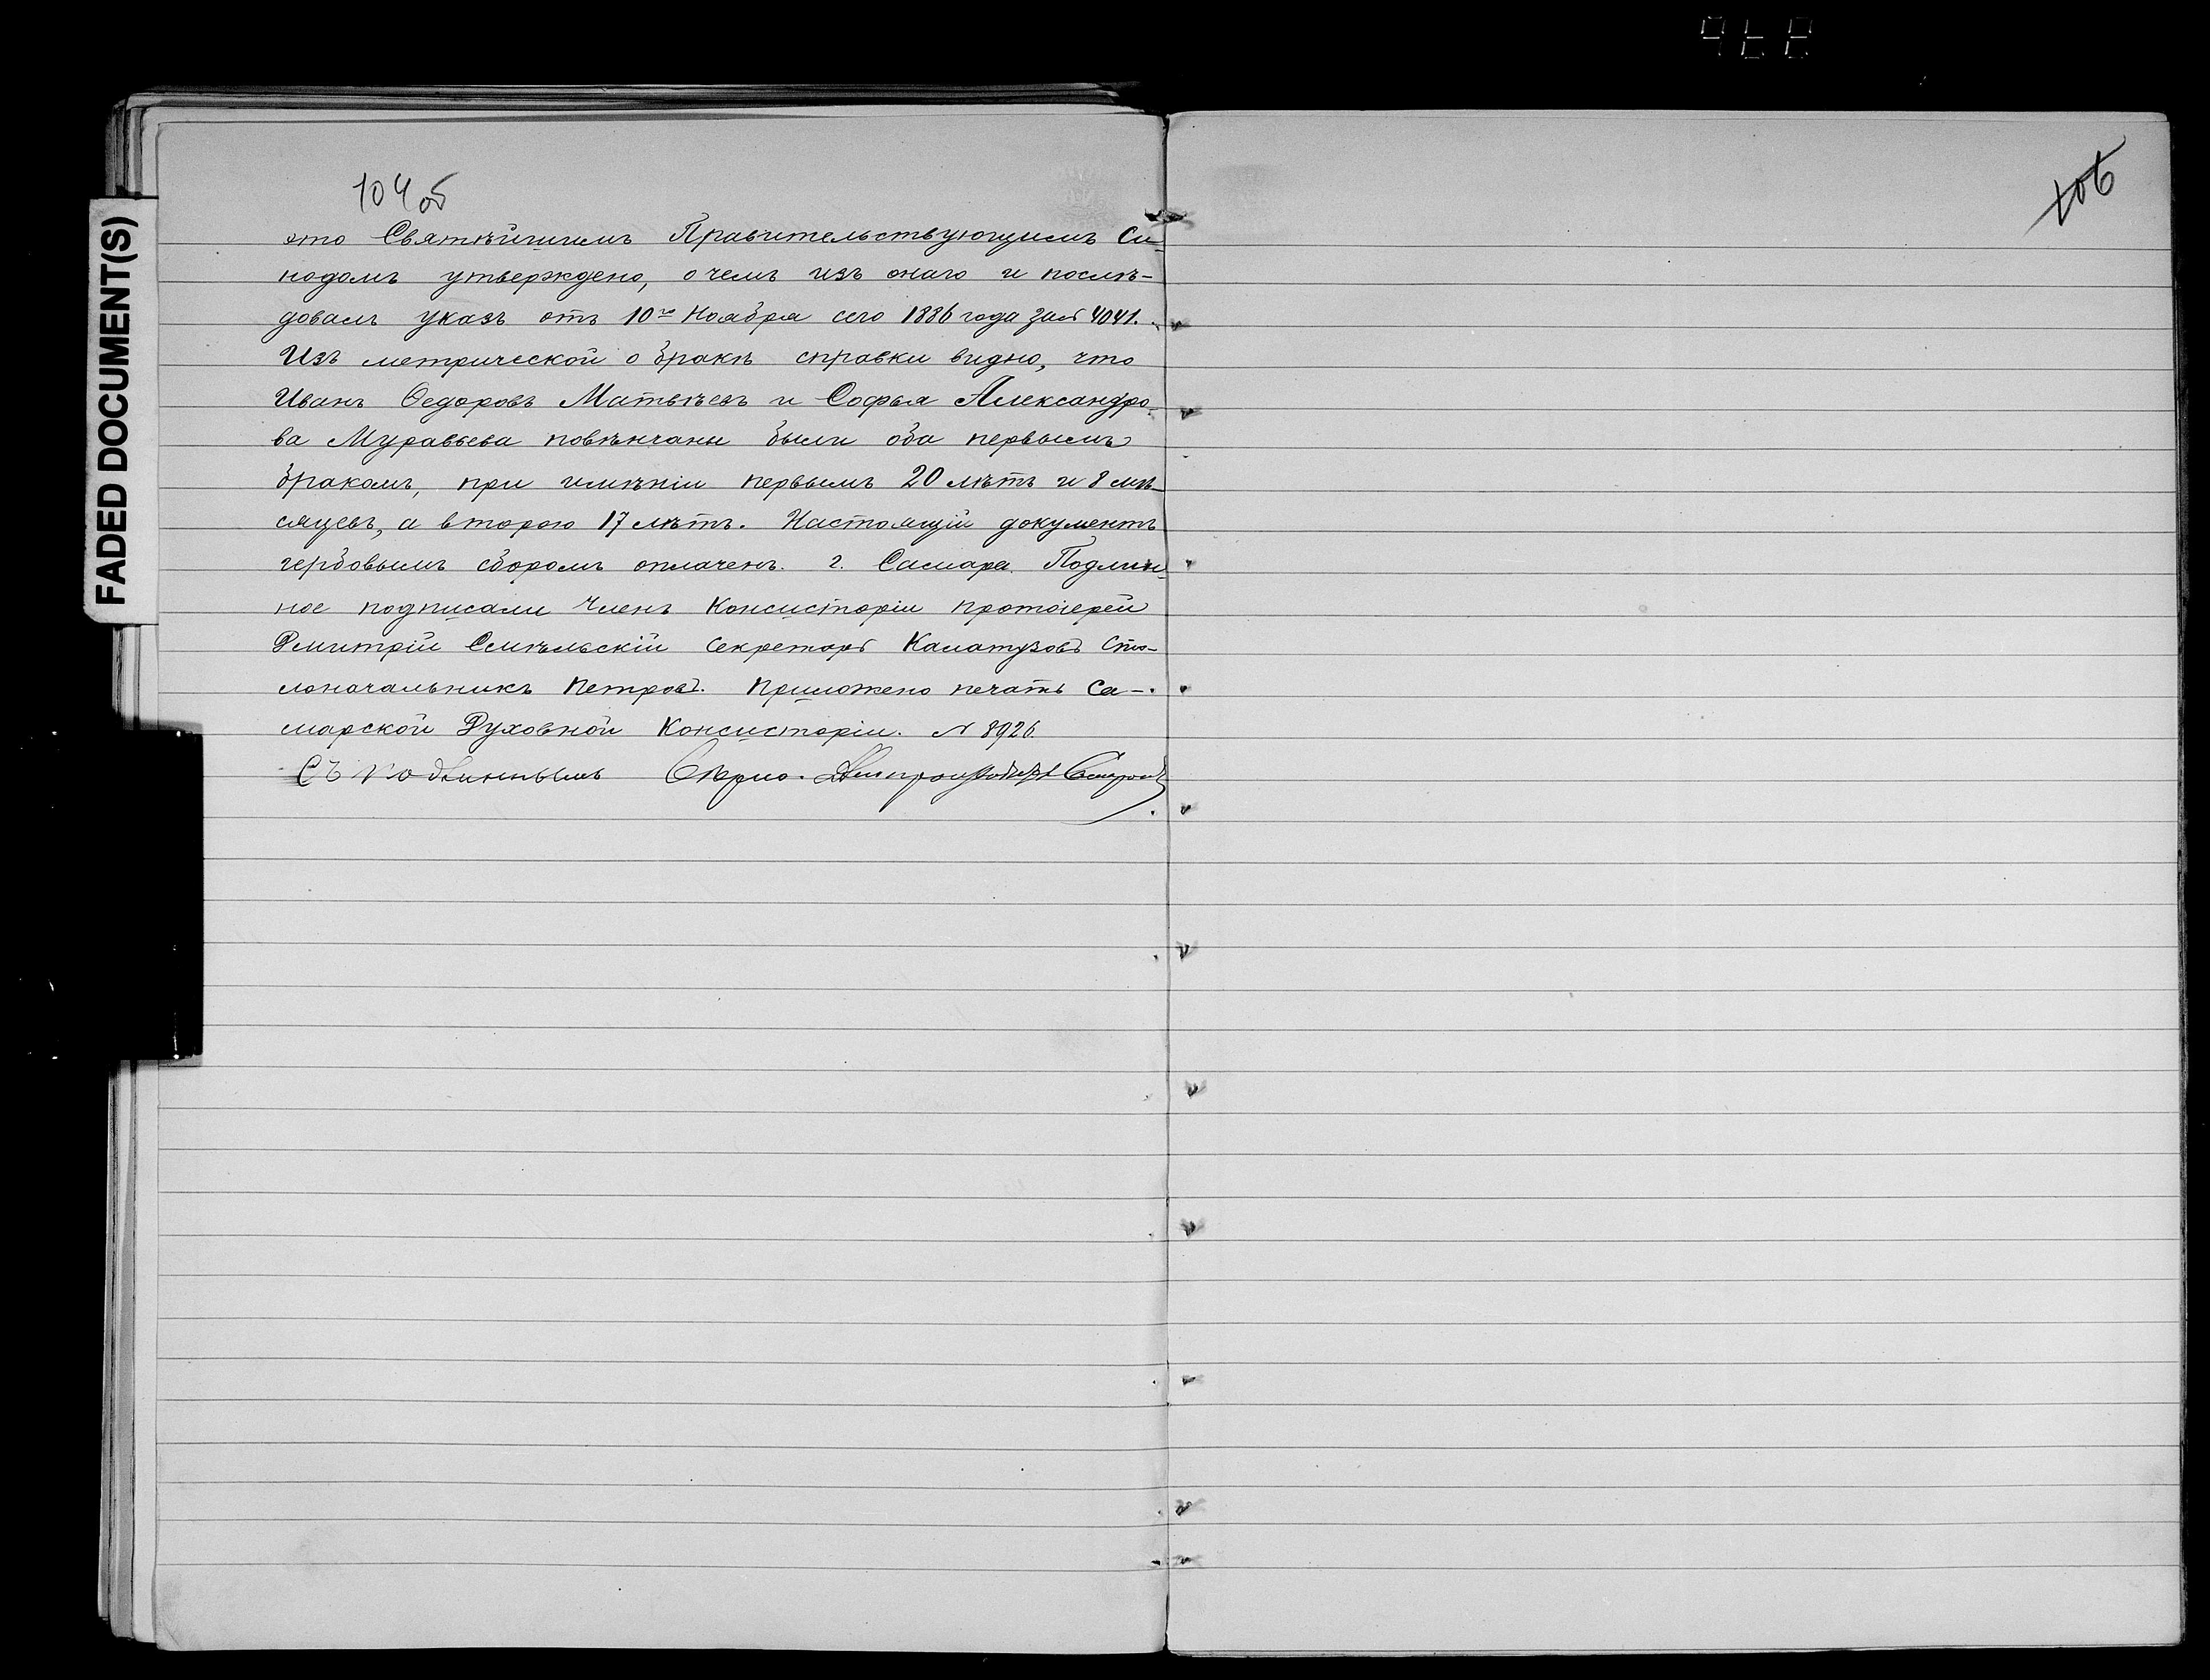 104 об
это Святѣйшимъ Правительствующимъ Си-
нодомъ утверждено, о чемъ изъ онаго и послѣ-
довалъ указъ отъ 10го Ноября сего 1886 года за № 4041.
Изъ метрической о бракѣ справки видно, что
Иванъ Ѳедоровъ Матвѣевъ и Софья Александро-
ва Муравьева повѣнчаны были оба первымъ
бракомъ, при имѣніи первымъ 20 лѣтъ и 8 мѣ-
сяцевъ, а второю 17 лѣтъ. Настоящій документъ
гербовымъ сборомъ оплаченъ. г. Самара. Подлин-
ное подписали Членъ Консисторіи протоіерей
Дмитрій Смѣльскій Секретарь Каматузовъ Сто-
лоначальникъ Петровъ. Приложено печать Са-
марской Духовной Консисторіи. № 8926.
Съ подлиннымъ Вѣрно.
106
FADED DOCUMENT(S)